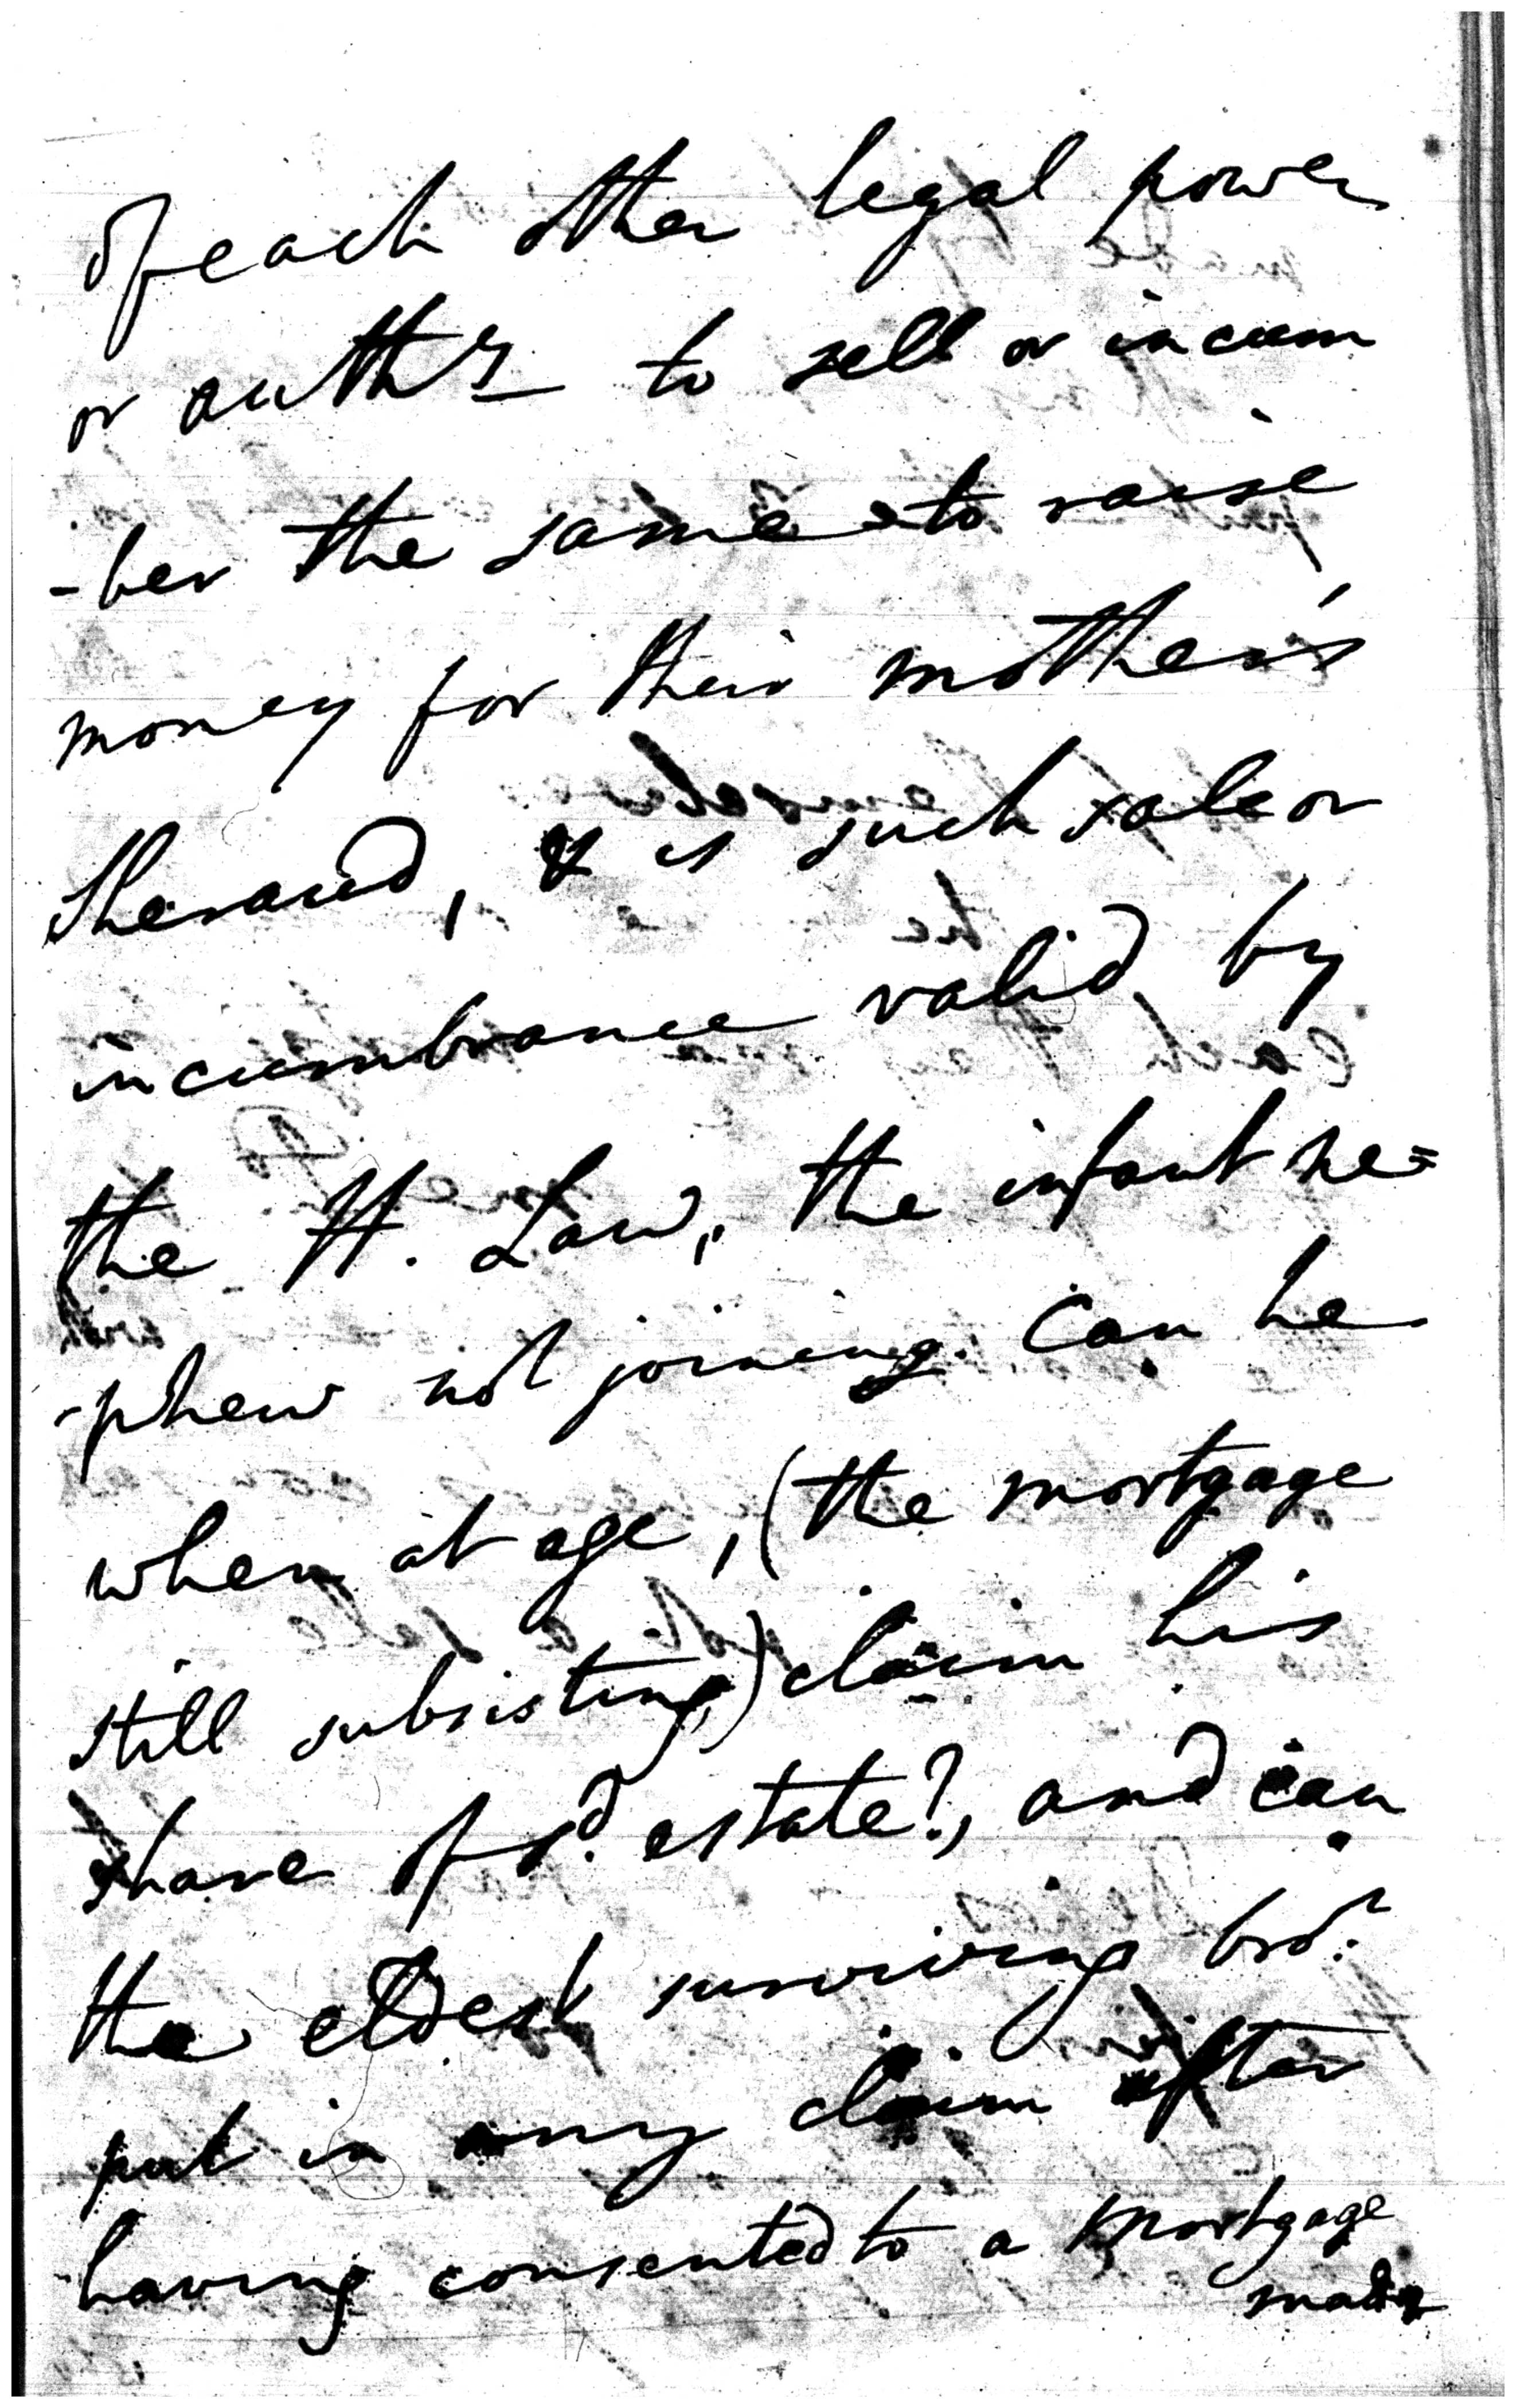 of each other legal power
or authy to sell or incum
-ber the same to raise
money for their mother's
Sheraud, & is such sale or
incumbrance valid by
the H. Law, the infant ne=
-phew not joining. Can he
when at age, (the mortgage
still subsisting,) claim his
share of sd. estate?, and can
the eldest surviving bror.
put in any claim after
having consented to a mortgage
made